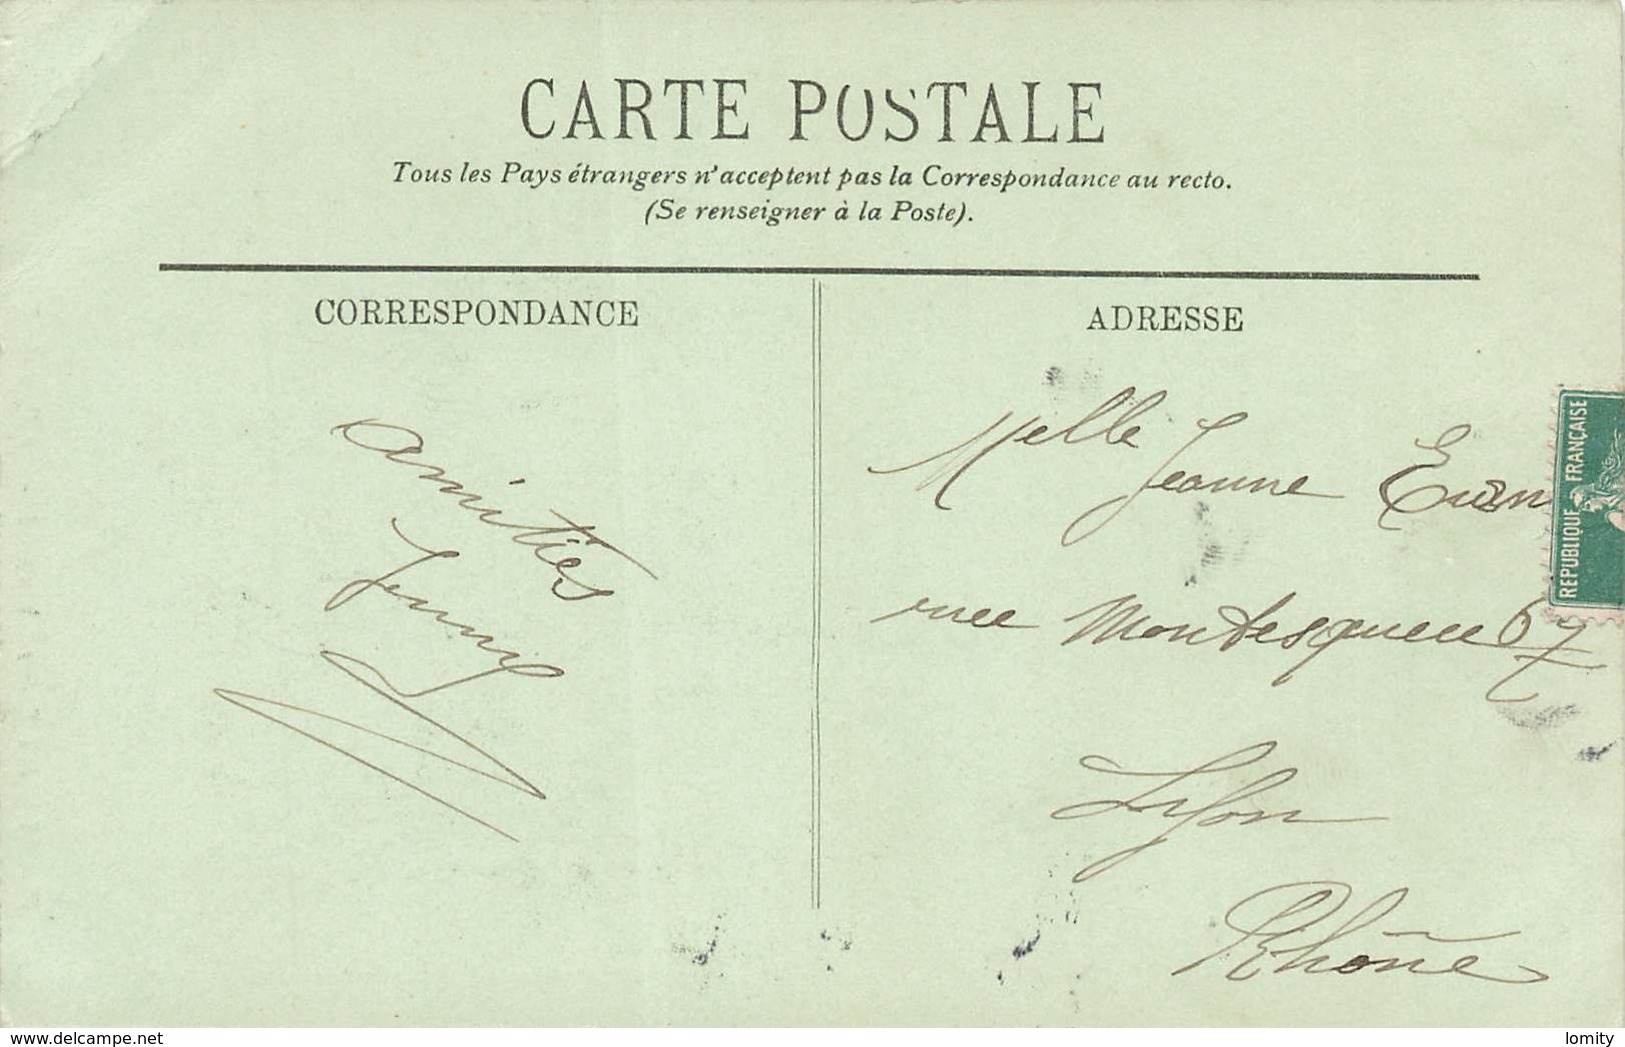 CARTE POSTALE
Tous les Pays étrangers n'acceptent pas la Correspondance au recto.
(Se renseigner à la Poste).
CORRESPONDANCE
ADRESSE
Amitiés
Jenny
Melle Jeanne
rue Montesquieu 67
Lyon
Rhône
REPUBLIQUE FRANÇAISE
www.delcampe.net
lomity